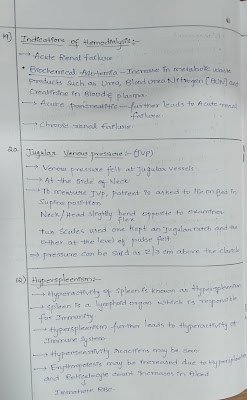 6
19) Indications of Hemodialysis:-
→ Acute Renal failure
• Biochemical Azotemia - Increase in metabolic waste
products such as Urea, Blood Urea Nitrogen [BUN] and
Creatinine in Blood & plasma
→ Acute pancreatitis - further leads to Acute renal
failure
→ Chronic renal failure
20. Jugular Venous pressure :- (JVP)
→ Venous pressure felt at Jugular vessels
→ At the side of Neck
→ To measure JVP, patient is asked to lie on fled in
Supine position
Neck / Head slightly bend opposite to examiner
flex
Two scales used one kept on Jugular notch and the
other at the level of pulse felt
→ pressure can be said as 2/3 cm above the
12) Hypersplenism:-
→ Hyperactivity of Spleen is known as Hypersplenism
→ Spleen is a lymphoid organ which is responsible
for Immunity
→ Hypersplenism further leads to Hyperactivity of
Immune System
→ Hypersensitivity reactions may be seen
→ Erythropoiesis may be increased due to Hypersplenism
and Reticulocyte count increases in blood
↓
Immature RBC